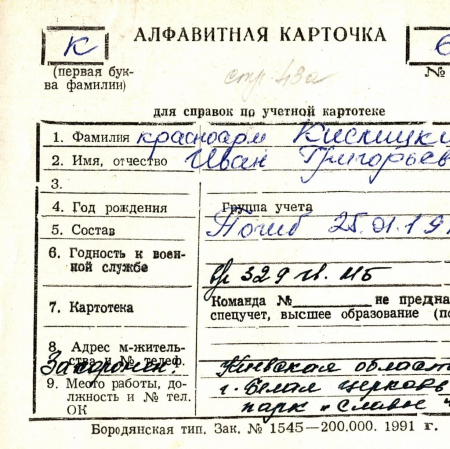 К
АЛФАВИТНАЯ КАРТОЧКА
6
(первая бук-
ва фамилии)
№
стр 43а
для справок по учетной картотеке
1. Фамилия красноарм Кислицки
2. Имя, отчество Иван Григорьев
3.
4. Год рождения
Группа учета
5. Состав
Погиб 25.01.19
6. Годность к воен-
ной службе
вр 329 гв. МБ
7. Картотека
Команда №
не предна
спецучет, высшее образование (по
8. Адрес м-житель-
ства и № телеф.
Захоронен:
Киевская област
9. Место работы, до-
лжность и № тел.
ОК
г. Белая церковь
парк "Славы"
Бородянская тип. Зак. № 1545—200.000. 1991 г.